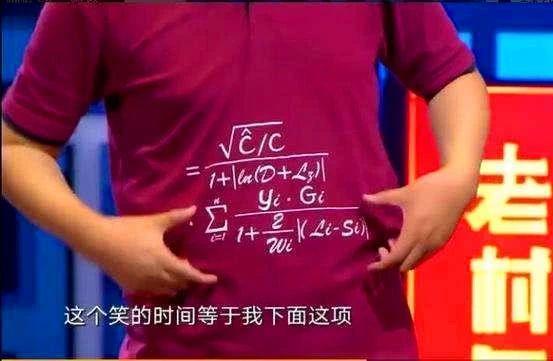 √Ĉ/C
= 1+|ln(D+L₃)|
n yi · Gi
· Σ
i=1 1+ 2/Wi |(Li-Si)|
老
村
这个笑的时间等于我下面这项